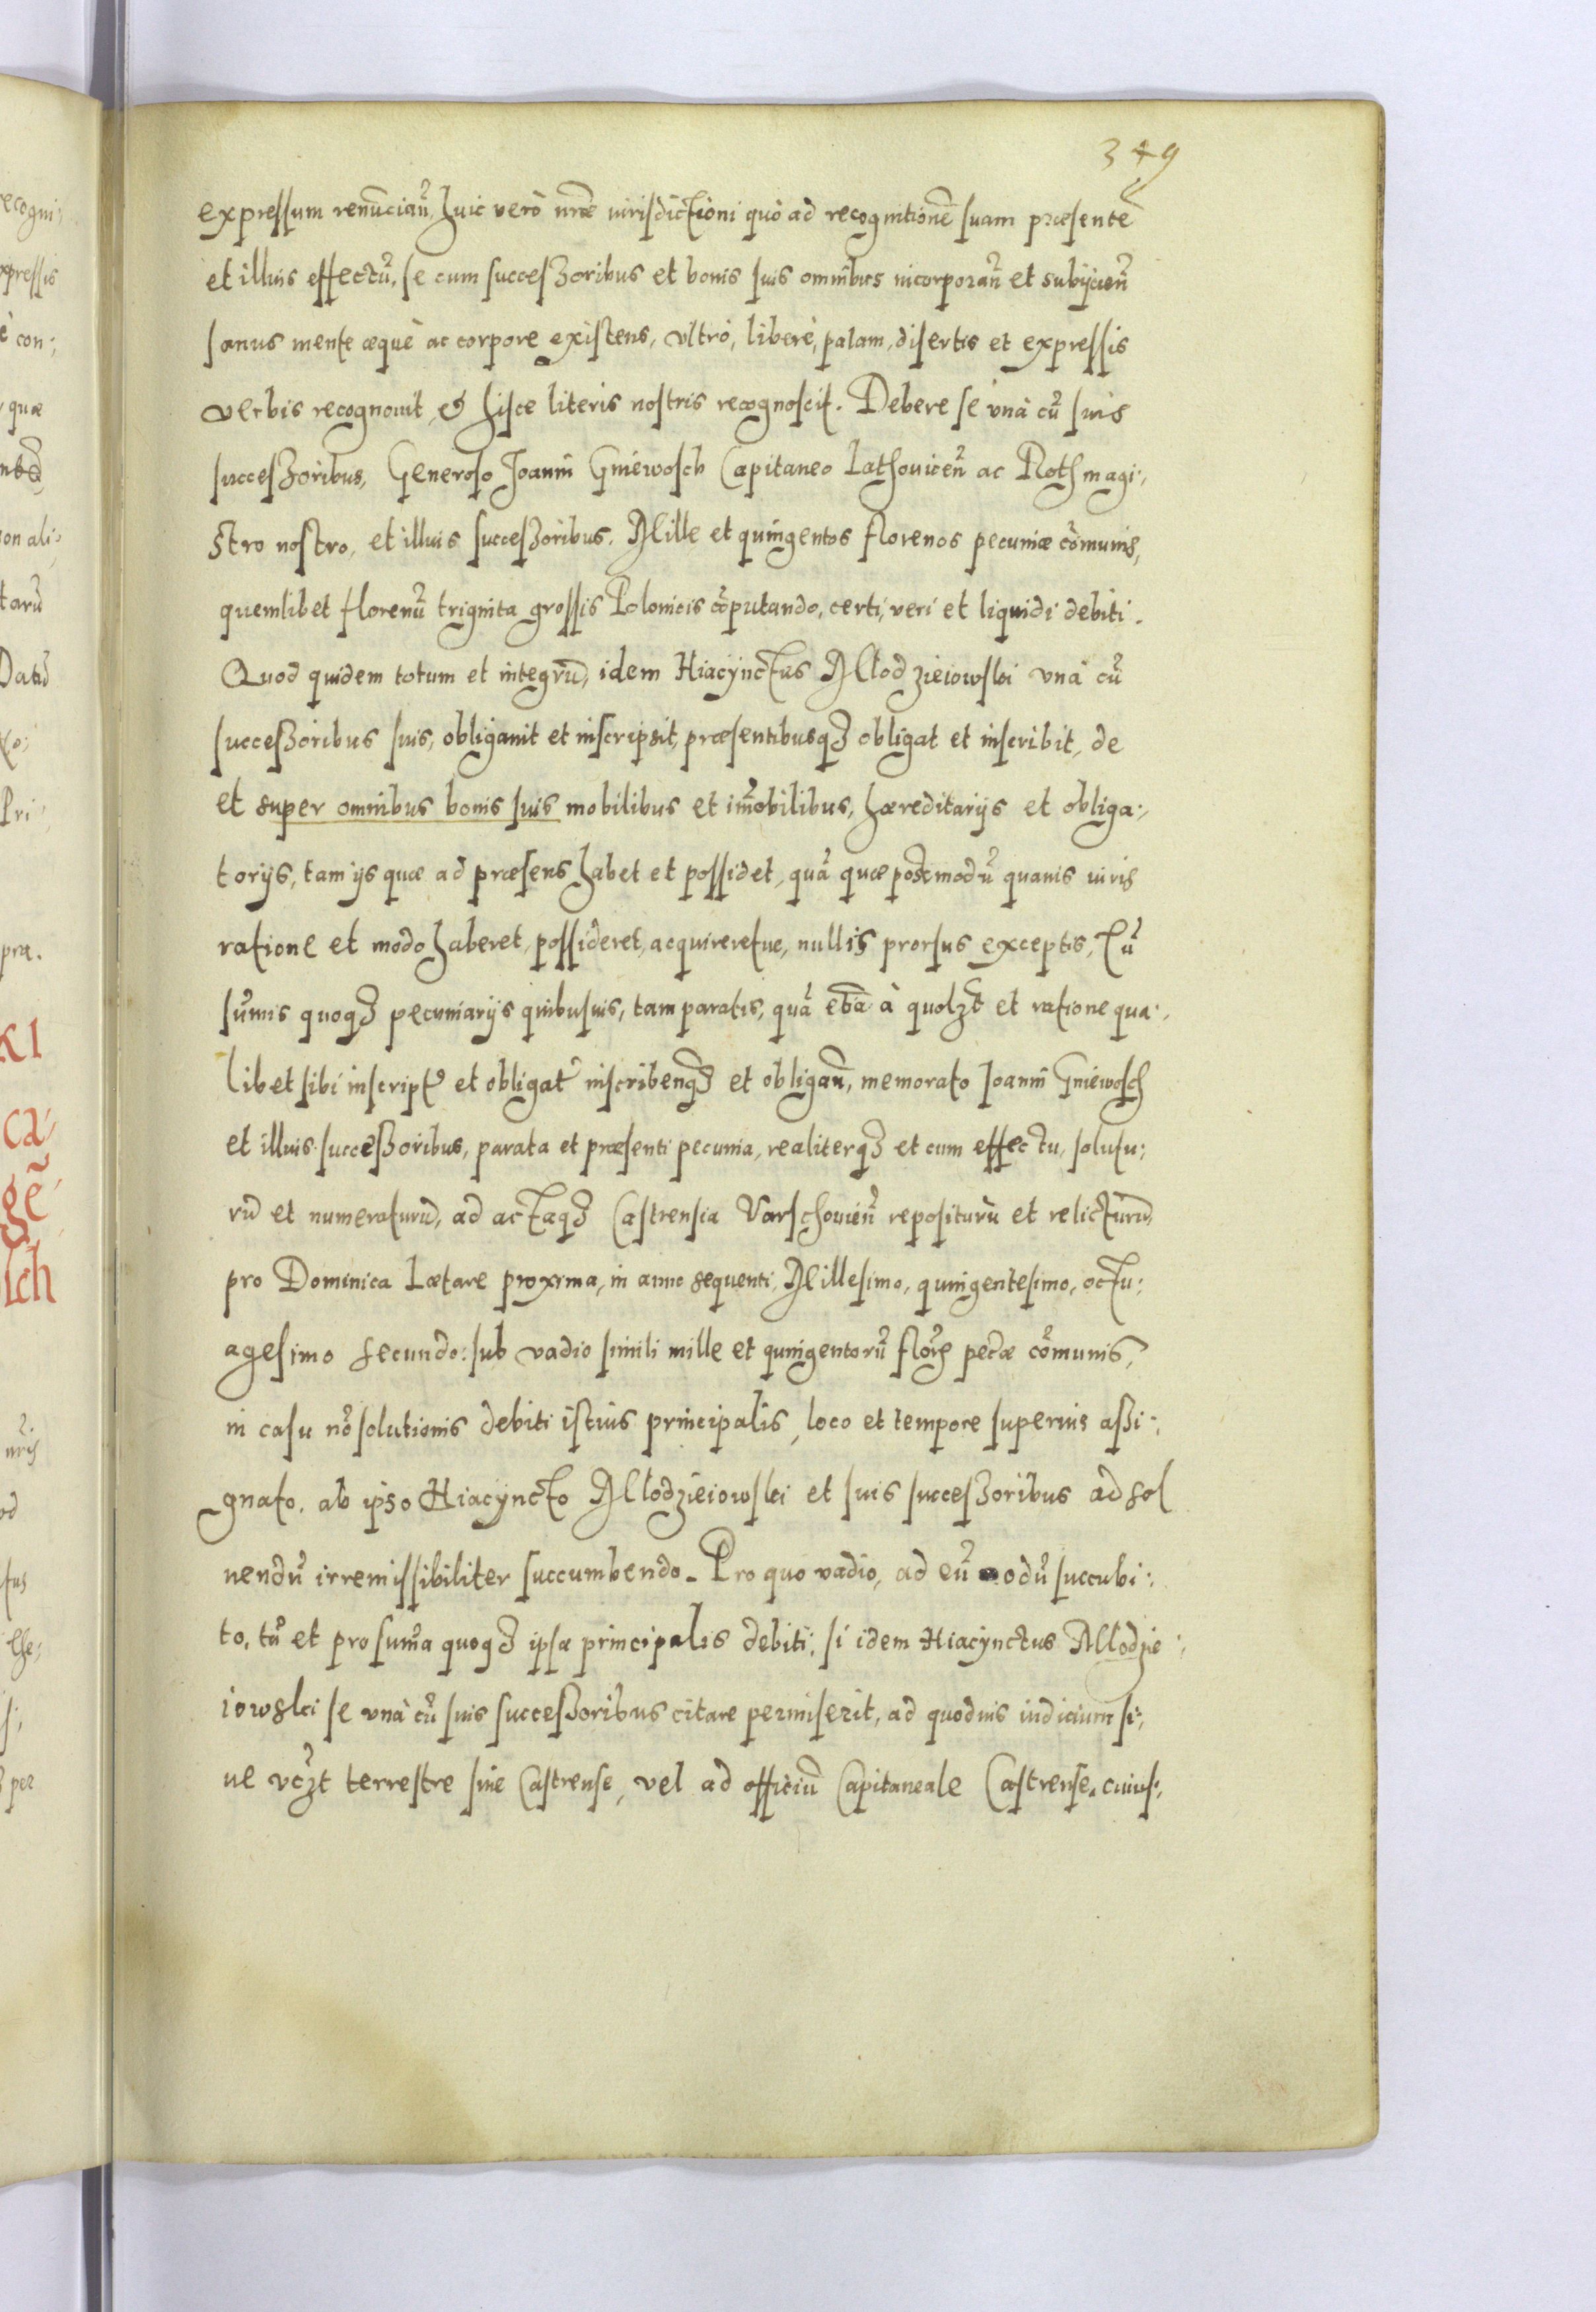 349
expressum renũcian̄, huic verò nr̄æ iurisdictioni quò ad recognitionẽ suam præsentẽ
et illius effectũ, se cum successoribus et bonis suis omnibus incorporan̄ et subijcien̄
sanus mente æquè ac corpore existens, vltrò, liberè, palam, disertis et expressis
verbis recognouit, & hisce literis nostris recognoscit. Debere se vnà cũ suis
successoribus, Generoso Joanni Gniewosch Capitaneo Lathouicen̄ ac Rothmagi:
stro nostro, et illius successoribus. Mille et quingentos florenos pecuniæ cõmunis,
quemlibet florenũ triginta grossis Polonicis cõputando, certi, veri et liquidi debiti.
Quod quidem totum et integrũ, idem Hiacynctus Mlodzieiowski vnà cũ
successoribus suis, obligauit et inscripsit, præsentibusqȝ obligat et inscribit, de
et super omnibus bonis suis mobilibus et im̃obilibus, hæreditarijs et obliga:
torijs, tam ijs quæ ad præsens habet et possidet, quã quæ postmodũ quauis iuris
ratione et modo haberet, possideret, acquireretue, nullis prorsus exceptis, Tũ
sũmis quoqȝ pecuniarijs quibusuis, tam paratis, quã etiã à quolȝt et ratione qua:
libet sibi inscript̃ et obligat̃ inscribenqȝ et obligan̄, memorato Joanni Gniewosch
et illius successoribus, parata et præsenti pecunia, realiterqȝ et cum effectu, solutu:
rũ et numeraturũ, ad actaqȝ Castrensia Varschouien̄ repositurũ et relicturũ,
pro Dominica Lætare proxima, in anno sequenti, Millesimo, quingentesimo, octu:
agesimo secundo: sub vadio simili mille et quingentorũ flor̃ pec̃æ cõmunis,
in casu nõ solutionis debiti istius principalis, loco et tempore superius assi:
gnato, ab ipso Hiacyncto Mlodzieiowski et suis successoribus ad sol
uendũ irremissibiliter succumbendo. Pro quo vadio, ad eũ modũ succubi:
to, tũ et pro sum̃a quoqȝ ipsæ principalis debiti, si idem Hiacynctus Mlodzie:
iowski se vnà cũ suis successoribus citare permiserit, ad quoduis iudicium si:
ue vcȝt terrestre siue Castrense, vel ad officiũ Capitaneale Castrense, cuius: